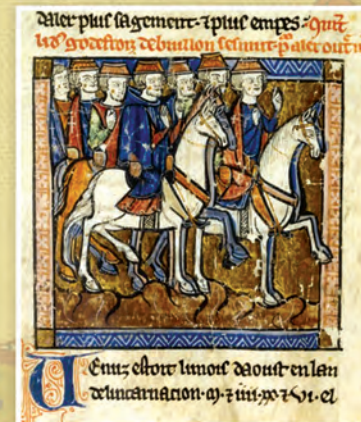 daler plus sagement ⁊ plus empes. Quāt
lidꝰ godefroiz de buillon sesmut pͬ aler outͬ
Uenuz estoit limois daoust en lan
delincarnacion ·m· ⁊ iiii·xx· ⁊ vi· el